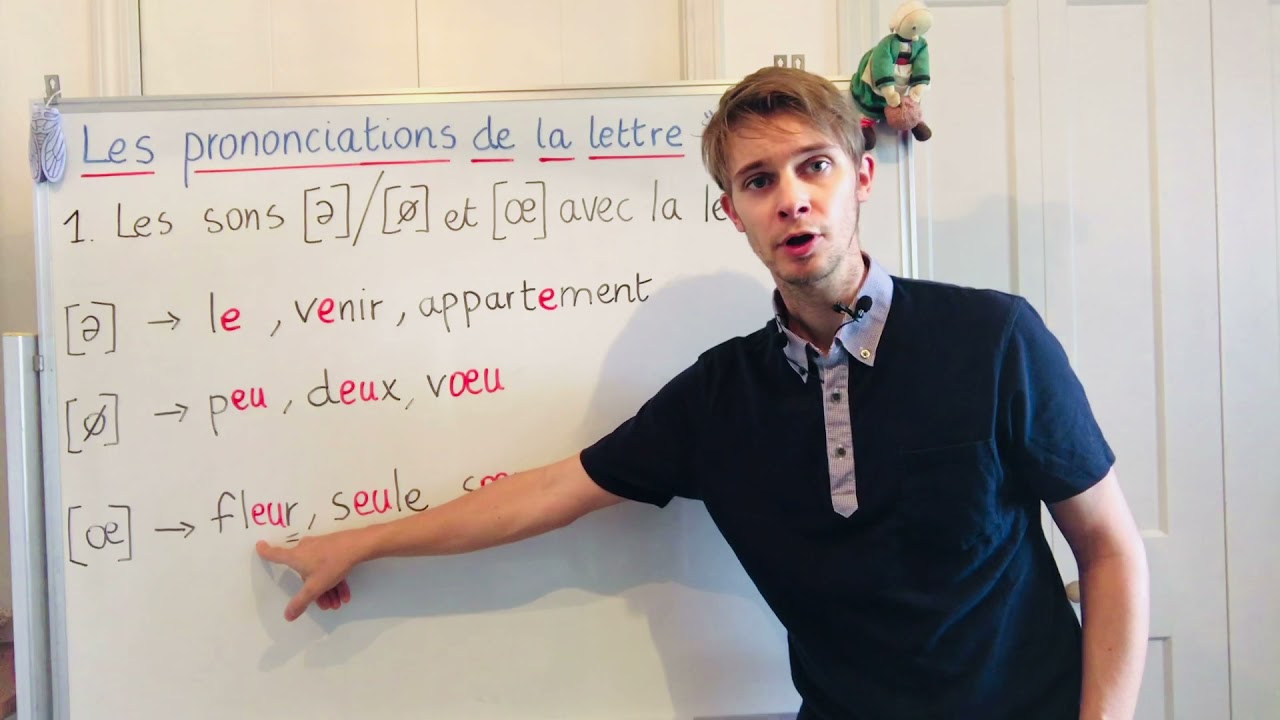 Les prononciations de la lettre
1. Les sons [ə]/[ø] et [œ] avec la
[ə] → le, venir, appartement
[ø] → peu, deux, vœu
[œ] → fleur, seule